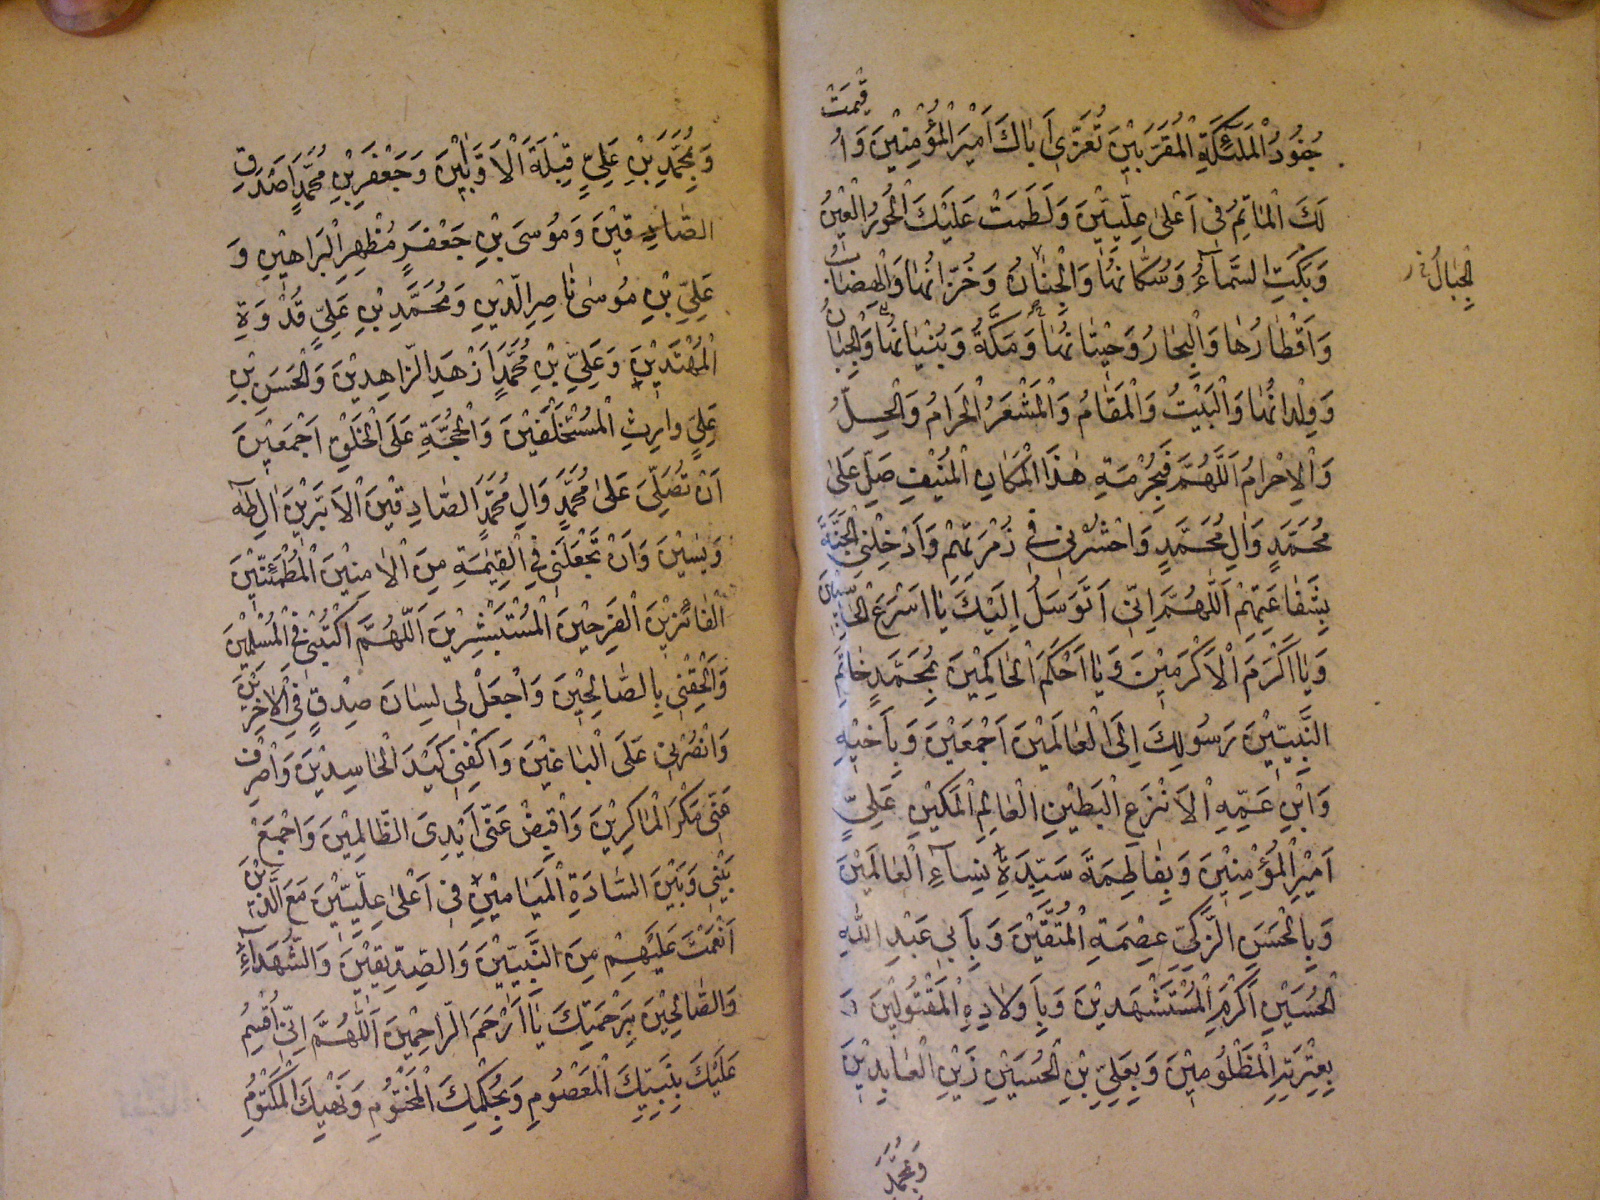 جُنُودُ الْمَلٰٓئِكَةِ الْمُقَرَّبِيْنَ تُعَزّٖى اَبٰاكَ اَمٖيْرَ الْمُؤْمِنٖيْنَ وَاُقٖيْمَتْ
لَكَ الْمَاٰتِمُ فٖى اَعْلىٰ عِلّٖيّٖيْنَ وَلَطَمَتْ عَلَيْكَ الْحُوْرُ الْعٖيْنُ
وَبَكَتِ السَّمٰآءُ وَسُكّٰانُهٰا وَالْجِنٰانُ وَخُزّٰانُهٰا وَالْهِضٰابُ
الْجِبٰالُ
وَاَقْطٰارُهٰا وَالْبِحٰارُ وَحٖيْتٰانُهٰا وَمَكَّةُ وَبُنْيٰانُهٰا وَالْجِنٰانُ
وَوِلْدٰانُهٰا وَالْبَيْتُ وَالْمَقٰامُ وَالْمَشْعَرُ الْحَرٰامُ وَالْحِلُّ
وَالْاِحْرٰامُ اَللّٰهُمَّ فَبِحُرْمَةِ هٰذَا الْمَكَانِ الْمُنٖيْفِ صَلِّ عَلىٰ
مُحَمَّدٍ وَاٰلِ مُحَمَّدٍ وَاحْشُرْنٖى فٖى زُمْرَتِهِمْ وَاَدْخِلْنِى الْجَنَّةَ
بِشَفٰاعَتِهِمْ اَللّٰهُمَّ اِنّٖى اَتَوَسَّلُ اِلَيْكَ يٰا اَسْرَعَ الْحٰاسِبٖيْنَ
وَيٰا اَكْرَمَ الْاَكْرَمٖيْنَ وَيٰا اَحْكَمَ الْحٰاكِمٖيْنَ بِمُحَمَّدٍ خٰاتَمِ
النَّبِيّٖيْنَ رَسُوْلِكَ اِلَى الْعٰالَمٖيْنَ اَجْمَعٖيْنَ وَبِاَخٖيْهِ
وَابْنِ عَمِّهِ الْاَنْزَعِ الْبَطٖيْنِ الْعٰالِمِ الْمَكٖيْنِ عَلِىٍّ
اَمٖيْرِ الْمُؤْمِنٖيْنَ وَبِفٰاطِمَةَ سَيِّدَةِ نِسٰآءِ الْعٰالَمٖيْنَ
وَبِالْحَسَنِ الزَّكِيِّ عِصْمَةِ الْمُتَّقٖيْنَ وَبِاَبٖى عَبْدِ اللّٰهِ
الْحُسَيْنِ اَكْرَمِ الْمُسْتَشْهَدٖيْنَ وَبِاَوْلٰادِهِ الْمَقْتُوْلٖيْنَ وَ
بِعِتْرَتِهِ الْمَظْلُوْمٖيْنَ وَبِعَلِىِّ بْنِ الْحُسَيْنِ زَيْنِ الْعٰابِدٖيْنَ
وَبِمُحَمَّدِ
وَبِمُحَمَّدِ بْنِ عَلِىٍّ قِبْلَةِ الْاَوّٰابٖيْنَ وَجَعْفَرِ بْنِ مُحَمَّدٍ اَصْدَقِ
الصّٰادِقٖيْنَ وَمُوْسَى بْنِ جَعْفَرٍ مُظْهِرِ الْبَرٰاهٖيْنِ وَ
عَلِىِّ بْنِ مُوْسىٰ نٰاصِرِ الدّٖيْنِ وَمُحَمَّدِ بْنِ عَلِىٍّ قُدْوَةِ
الْمُهْتَدٖيْنَ وَعَلِىِّ بْنِ مُحَمَّدٍ اَزْهَدِ الزّٰاهِدٖيْنَ وَالْحَسَنِ بْنِ
عَلِىٍّ وٰارِثِ الْمُسْتَخْلَفٖيْنَ وَالْحُجَّةِ عَلَى الْخَلْقِ اَجْمَعٖيْنَ
اَنْ تُصَلِّىَ عَلىٰ مُحَمَّدٍ وَاٰلِ مُحَمَّدٍ الصّٰادِقٖيْنَ الْاَبَرّٖيْنَ اٰلِ طٰهٰ
وَيٰسٖيْنَ وَاَنْ تَجْعَلَنٖى فِى الْقِيٰمَةِ مِنَ الْاٰمِنٖيْنَ الْمُطْمَئِنّٖيْنَ
الْفٰآئِزٖيْنَ الْفَرِحٖيْنَ الْمُسْتَبْشِرٖيْنَ اَللّٰهُمَّ اكْتُبْنٖى فِى الْمُسْلِمٖيْنَ
وَاَلْحِقْنٖى بِالصّٰالِحٖيْنَ وَاجْعَلْ لٖى لِسٰانَ صِدْقٍ فِى الْاٰخِرٖيْنَ
وَانْصُرْنٖى عَلَى الْبٰاغٖيْنَ وَاكْفِنٖى كَيْدَ الْحٰاسِدٖيْنَ وَاصْرِفْ
عَنّٖى مَكْرَ الْمٰاكِرٖيْنَ وَاقْبِضْ عَنّٖى اَيْدِىَ الظّٰالِمٖيْنَ وَاجْمَعْ
بَيْنٖى وَبَيْنَ السّٰادَةِ الْمَيٰامٖيْنِ فٖى اَعْلىٰ عِلّٖيّٖيْنَ مَعَ الَّذٖيْنَ
اَنْعَمْتَ عَلَيْهِمْ مِنَ النَّبِيّٖيْنَ وَالصِّدّٖيْقٖيْنَ وَالشُّهَدٰآءِ
وَالصّٰالِحٖيْنَ بِرَحْمَتِكَ يٰا اَرْحَمَ الرّٰاحِمٖيْنَ اَللّٰهُمَّ اِنّٖى اُقْسِمُ
عَلَيْكَ بِنَبِيِّكَ الْمَعْصُوْمِ وَبِحُكْمِكَ الْمَخْتُوْمِ وَنَهْيِكَ الْمَكْتُوْمِ